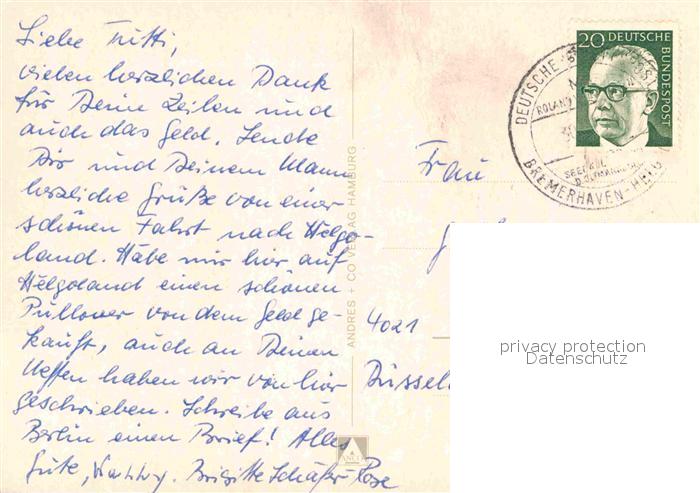 Liebe Mutti,
vielen herzlichen Dank
für Deine Zeilen und
auch das Geld. Sende
Dir und Deinem Mann
herzliche Grüße von einer
schönen Fahrt nach Helgo-
land. Habe mir hier auf
Helgoland einen schönen
Pullover von dem Geld ge-
kauft, auch an Deinen
Neffen haben wir von hier
geschrieben. Schreibe aus
Berlin einen Brief! Alles
Gute, Brigitte Schäfer-Rose
ANDRES + CO VERLAG HAMBURG
20 DEUTSCHE
BUNDESPOST
DEUTSCHE
ROLAND
BREMERHAVEN-HELG
Frau
4021
Düssel
privacy protection
Datenschutz